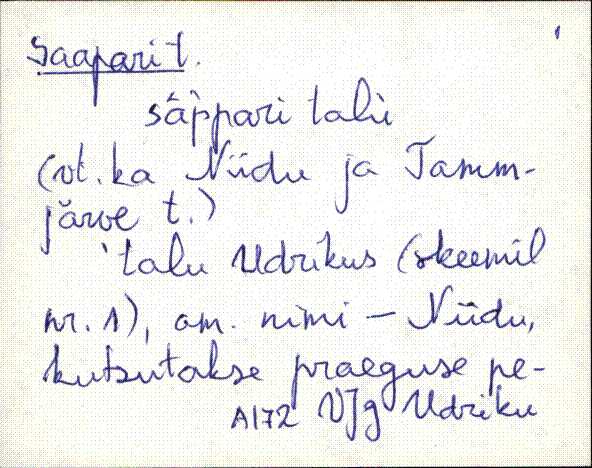 Saapari t.
sāppari talu
(vt. ka Niidu ja Tamm-
järve t.)
talu Udrikus (skeemil
nr. 1), am. nimi – Niidu,
kutsutakse praeguse pe-
A172 VJg Udriku